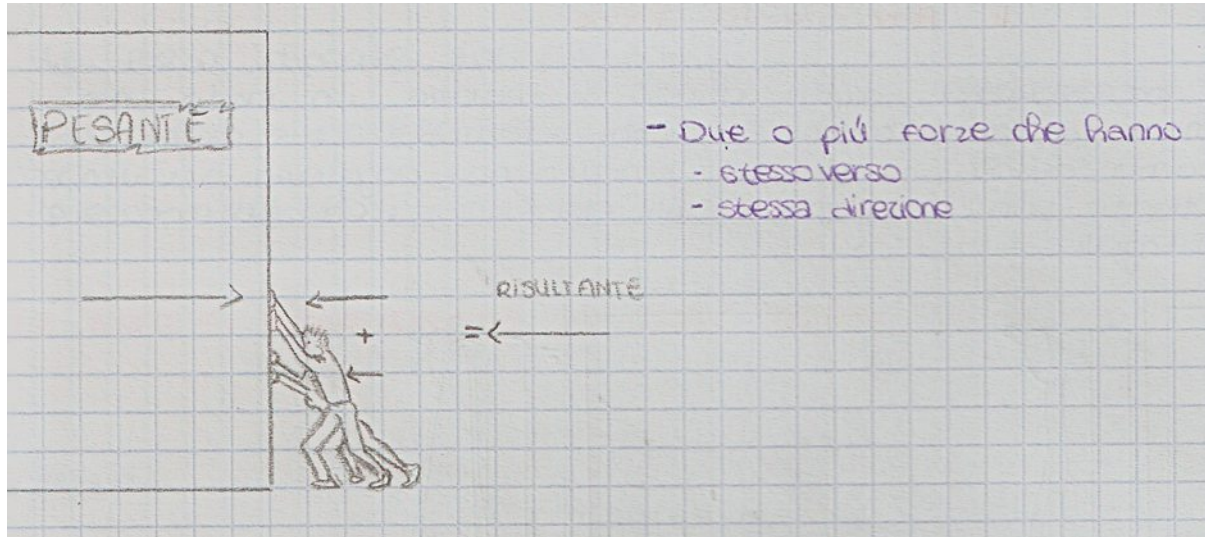 PESANTE
- Due o più forze che hanno
- stesso verso
- stessa direzione
RISULTANTE
+
=